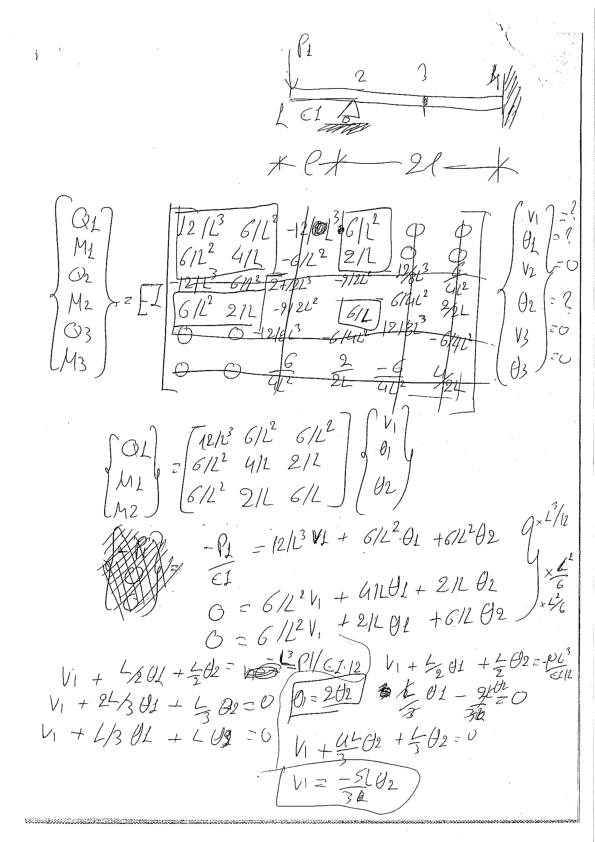 P1
2 3 4
L EI
l 2l
Q1
M1
Q2
M2
Q3
M3
= EI
12/L³ 6/L² -12/L³ 6/L² 0 0
6/L² 4/L -6/L² 2/L 0 0
-12/L³ 6/L² 27/2L³ -9/2L² 12/8L³
6/L² 2/L -9/2L² 6/L 6/4L² 2/2L
0 0 -12/8L³ -6/4L² 12/8L³ -6/4L²
0 0 6/4L² 2/2L -6/4L² 4/2L
V1 = ?
θ1 = ?
V2 = 0
θ2 = ?
V3 = 0
θ3 = 0
Q1
M1
M2
=
12/L³ 6/L² 6/L²
6/L² 4/L 2/L
6/L² 2/L 6/L
V1
θ1
θ2
-P1/EI = 12/L³ V1 + 6/L² θ1 + 6/L² θ2 × L³/12
0 = 6/L² V1 + 4/L θ1 + 2/L θ2 × L²/6
0 = 6/L² V1 + 2/L θ1 + 6/L θ2 × L²/6
V1 + L/2 θ1 + L/2 θ2 = -L³P1/EI·12
V1 + 2L/3 θ1 + L/3 θ2 = 0
V1 + L/3 θ1 + L θ2 = 0
V1 + L/2 θ1 + L/2 θ2 = -PL³/EI12
θ1 = 2θ2
L/3 θ1 - 2Lθ2/3 = 0
V1 + 4L/3 θ2 + L/3 θ2 = 0
V1 = -5L/3 θ2